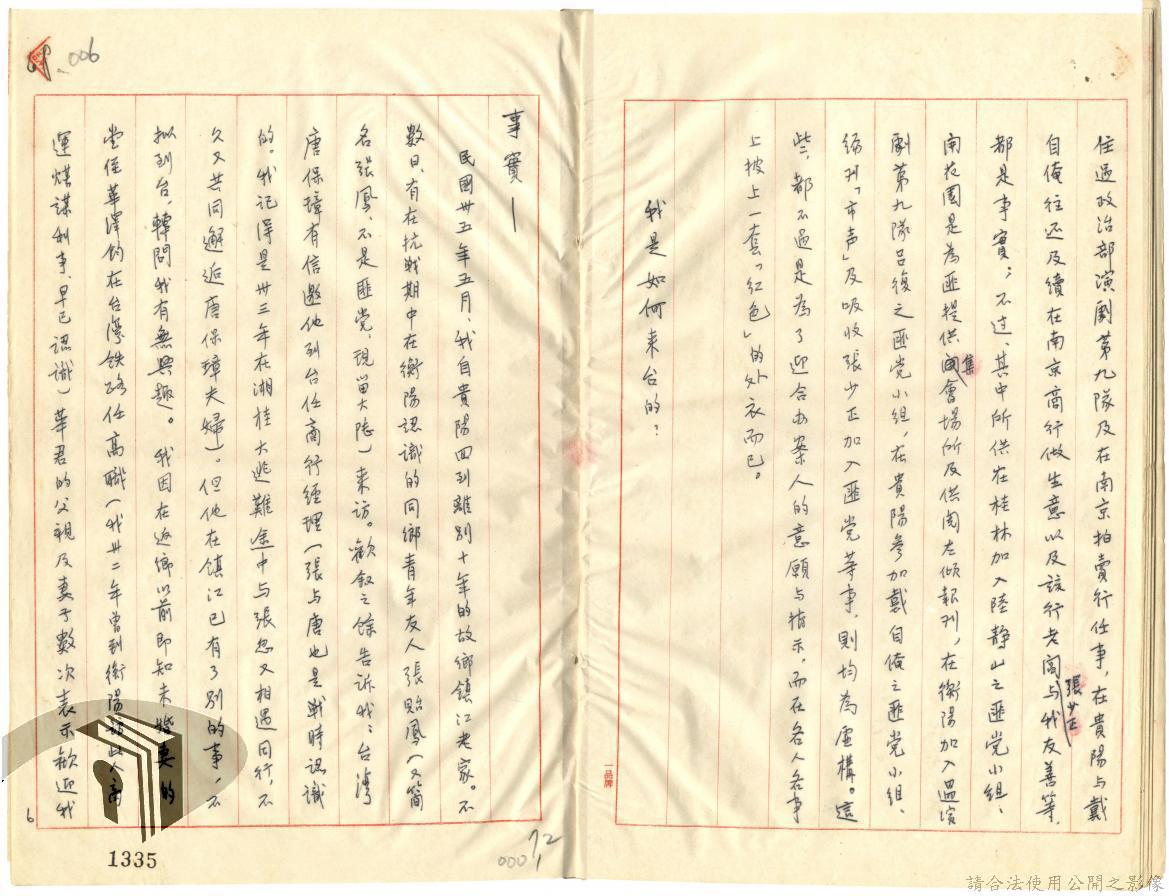 住過政治部演劇第九隊及在南京拍賣行任事，在貴陽与戴
自俺往还及續在南京商行做生意以及該行老闆張少正与我友善等，
都是事實；不过，其中所供在桂林加入陸静山之匪党小组、
南花園是為匪提供集會場所及供閱左傾報刊，在衡陽加入
劇第九隊吕復之匪党小组，在貴陽参加戴自俺之匪党小组、
编刊「市声」及吸收張少正加入匪党等事，則均為虚構。這
些，都不过是為了迎合办案人的意願与指示，而在各人各事
上披上一套「红色」的外衣而已。
我是如何来台的：
事實—
民國卅五年五月，我自貴陽回到離别十年的故鄉鎮江老家。不
数日，有在抗战期中在衡陽認識的同鄉青年友人張貽鳳（又简
名張鳳，不是匪党，現留大陸）来访。歡叙之馀告訴我：台湾
唐保璋有信邀他到台任商行经理（張与唐也是戰時認識
的。我记得是卅三年在湘桂大逃難途中与張忽又相遇同行，不
久又共同邂逅唐保璋夫婦）。但他在镇江已有了别的事，不
拟到台，轉問我有無興趣。我因在返鄉以前即知未婚妻的
堂侄華澤鈞在台湾铁路任高職（我卅二年曾到衡陽訪此人商
運煤謀利事，早已認識）華君的父親及妻子數次表示歡迎我
006
6
1335
72
0001
一品牌
請合法使用公開之影像